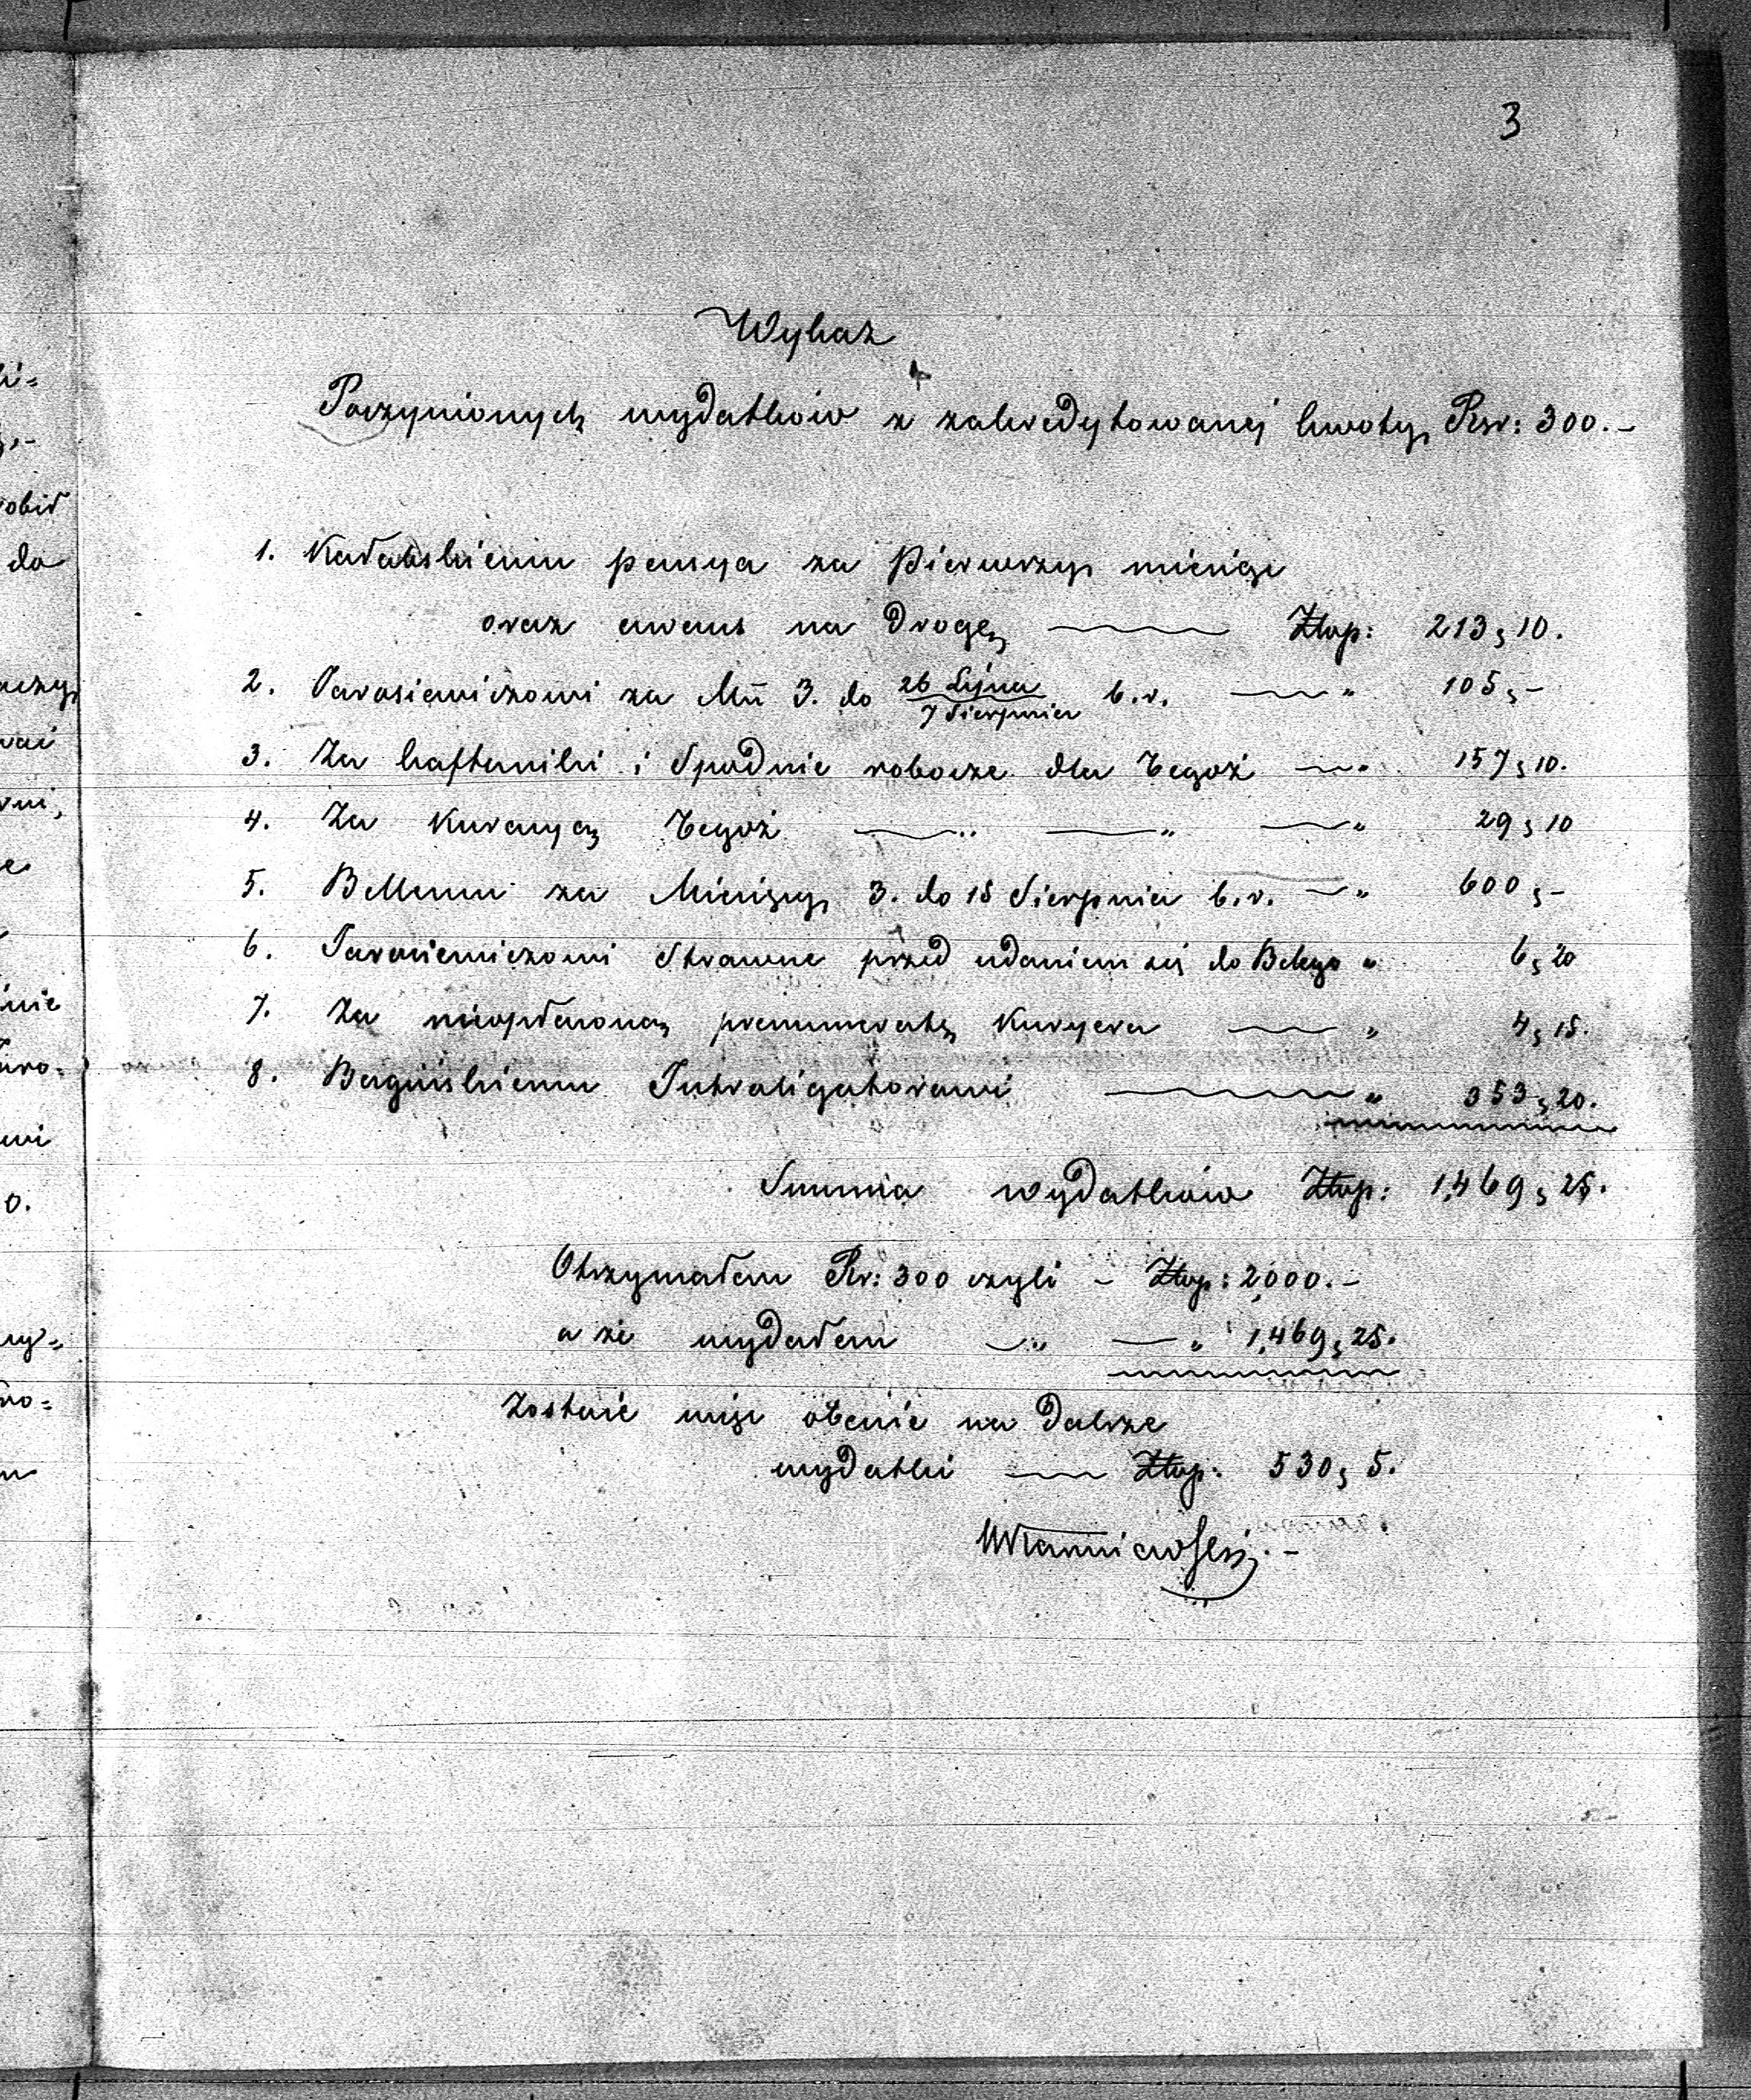 3
Wykaz
Poczynionych wydatków z zakredytowanej kwoty Rsr: 300.-
1. Kadalskiemu pensya za Pierwszy miesiąc
oraz awans na Drogę Złtp: 213, 10.
2. Tarasiewiczowi za Mc 3. do 26 Lipca / 7 Sierpnia b.r. " 105, -
3. Za kaftaniki i Spodnie robocze dla Tegoż " 157, 10.
4. Za Kuracyą Tegoż " " " 29, 10
5. Bellemu za Miesięcy 3. do 15 Sierpnia b.r. " 600, -
6. Tarasiewiczowi Strawne przed udaniem się do Belego " 6, 20
7. Za nieopłaconą prenumeratę Kuryera " 4, 15.
8. Bagińskiemu Introligatorowi " 353, 20.
Summa wydatków Złtp: 1,469, 25.
Otrzymałem Rsr: 300 czyli - Złtp: 2,000.-
a że wydałem " " 1,469, 25.
Zostaie więc obecnie na Dalsze
wydatki Złtp: 530, 5.